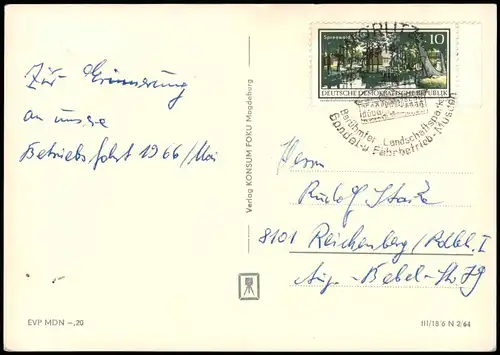 Zur Erinnerung
an unsre
Betriebsfahrt 1966/Mai
Verlag KONSUM FOKU Magdeburg
WÖRLITZ
Spreewald
10
DEUTSCHE DEMOKRATISCHE REPUBLIK
Berühmter Landschaftspark
Gondel-u. Fährbetrieb-Museen
Herrn
Rudolf Starke
8101 Reichenberg/Rdbl. I
Aug.-Bebel-Str. 79
EVP MDN -,20
III/18/6 N 2/64